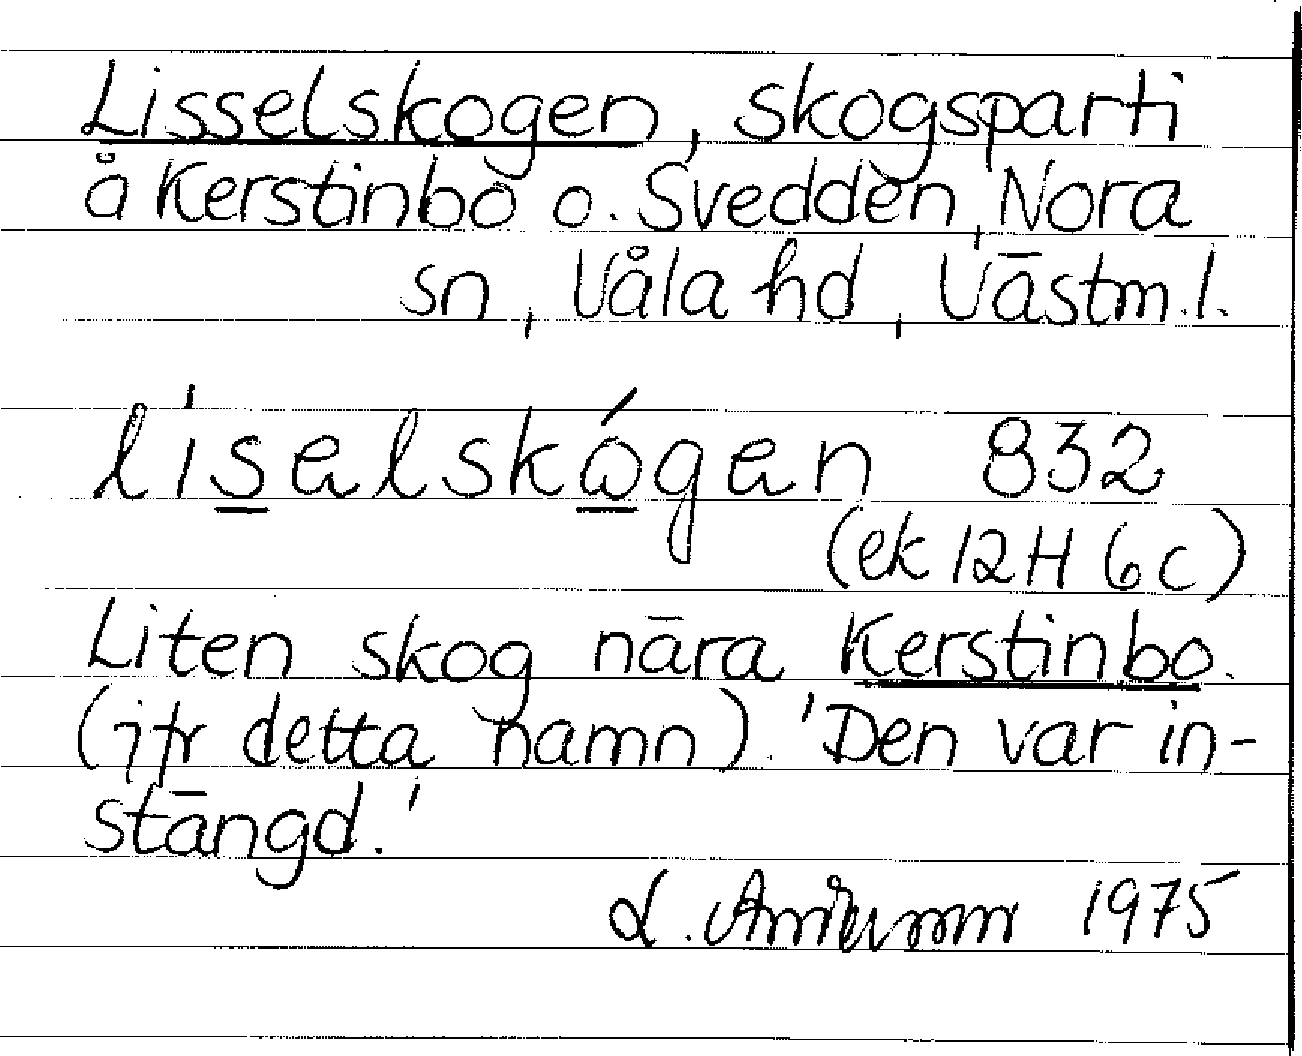 Lisselskogen, skogsparti
å Kerstinbo o. Svedden, Nora
sn, Våla hd, Västm.l.
lisəlskógən 832
(ek 12H 6c)
Liten skog nära Kerstinbo.
(jfr detta namn). 'Den var in-
stängd.'
1975